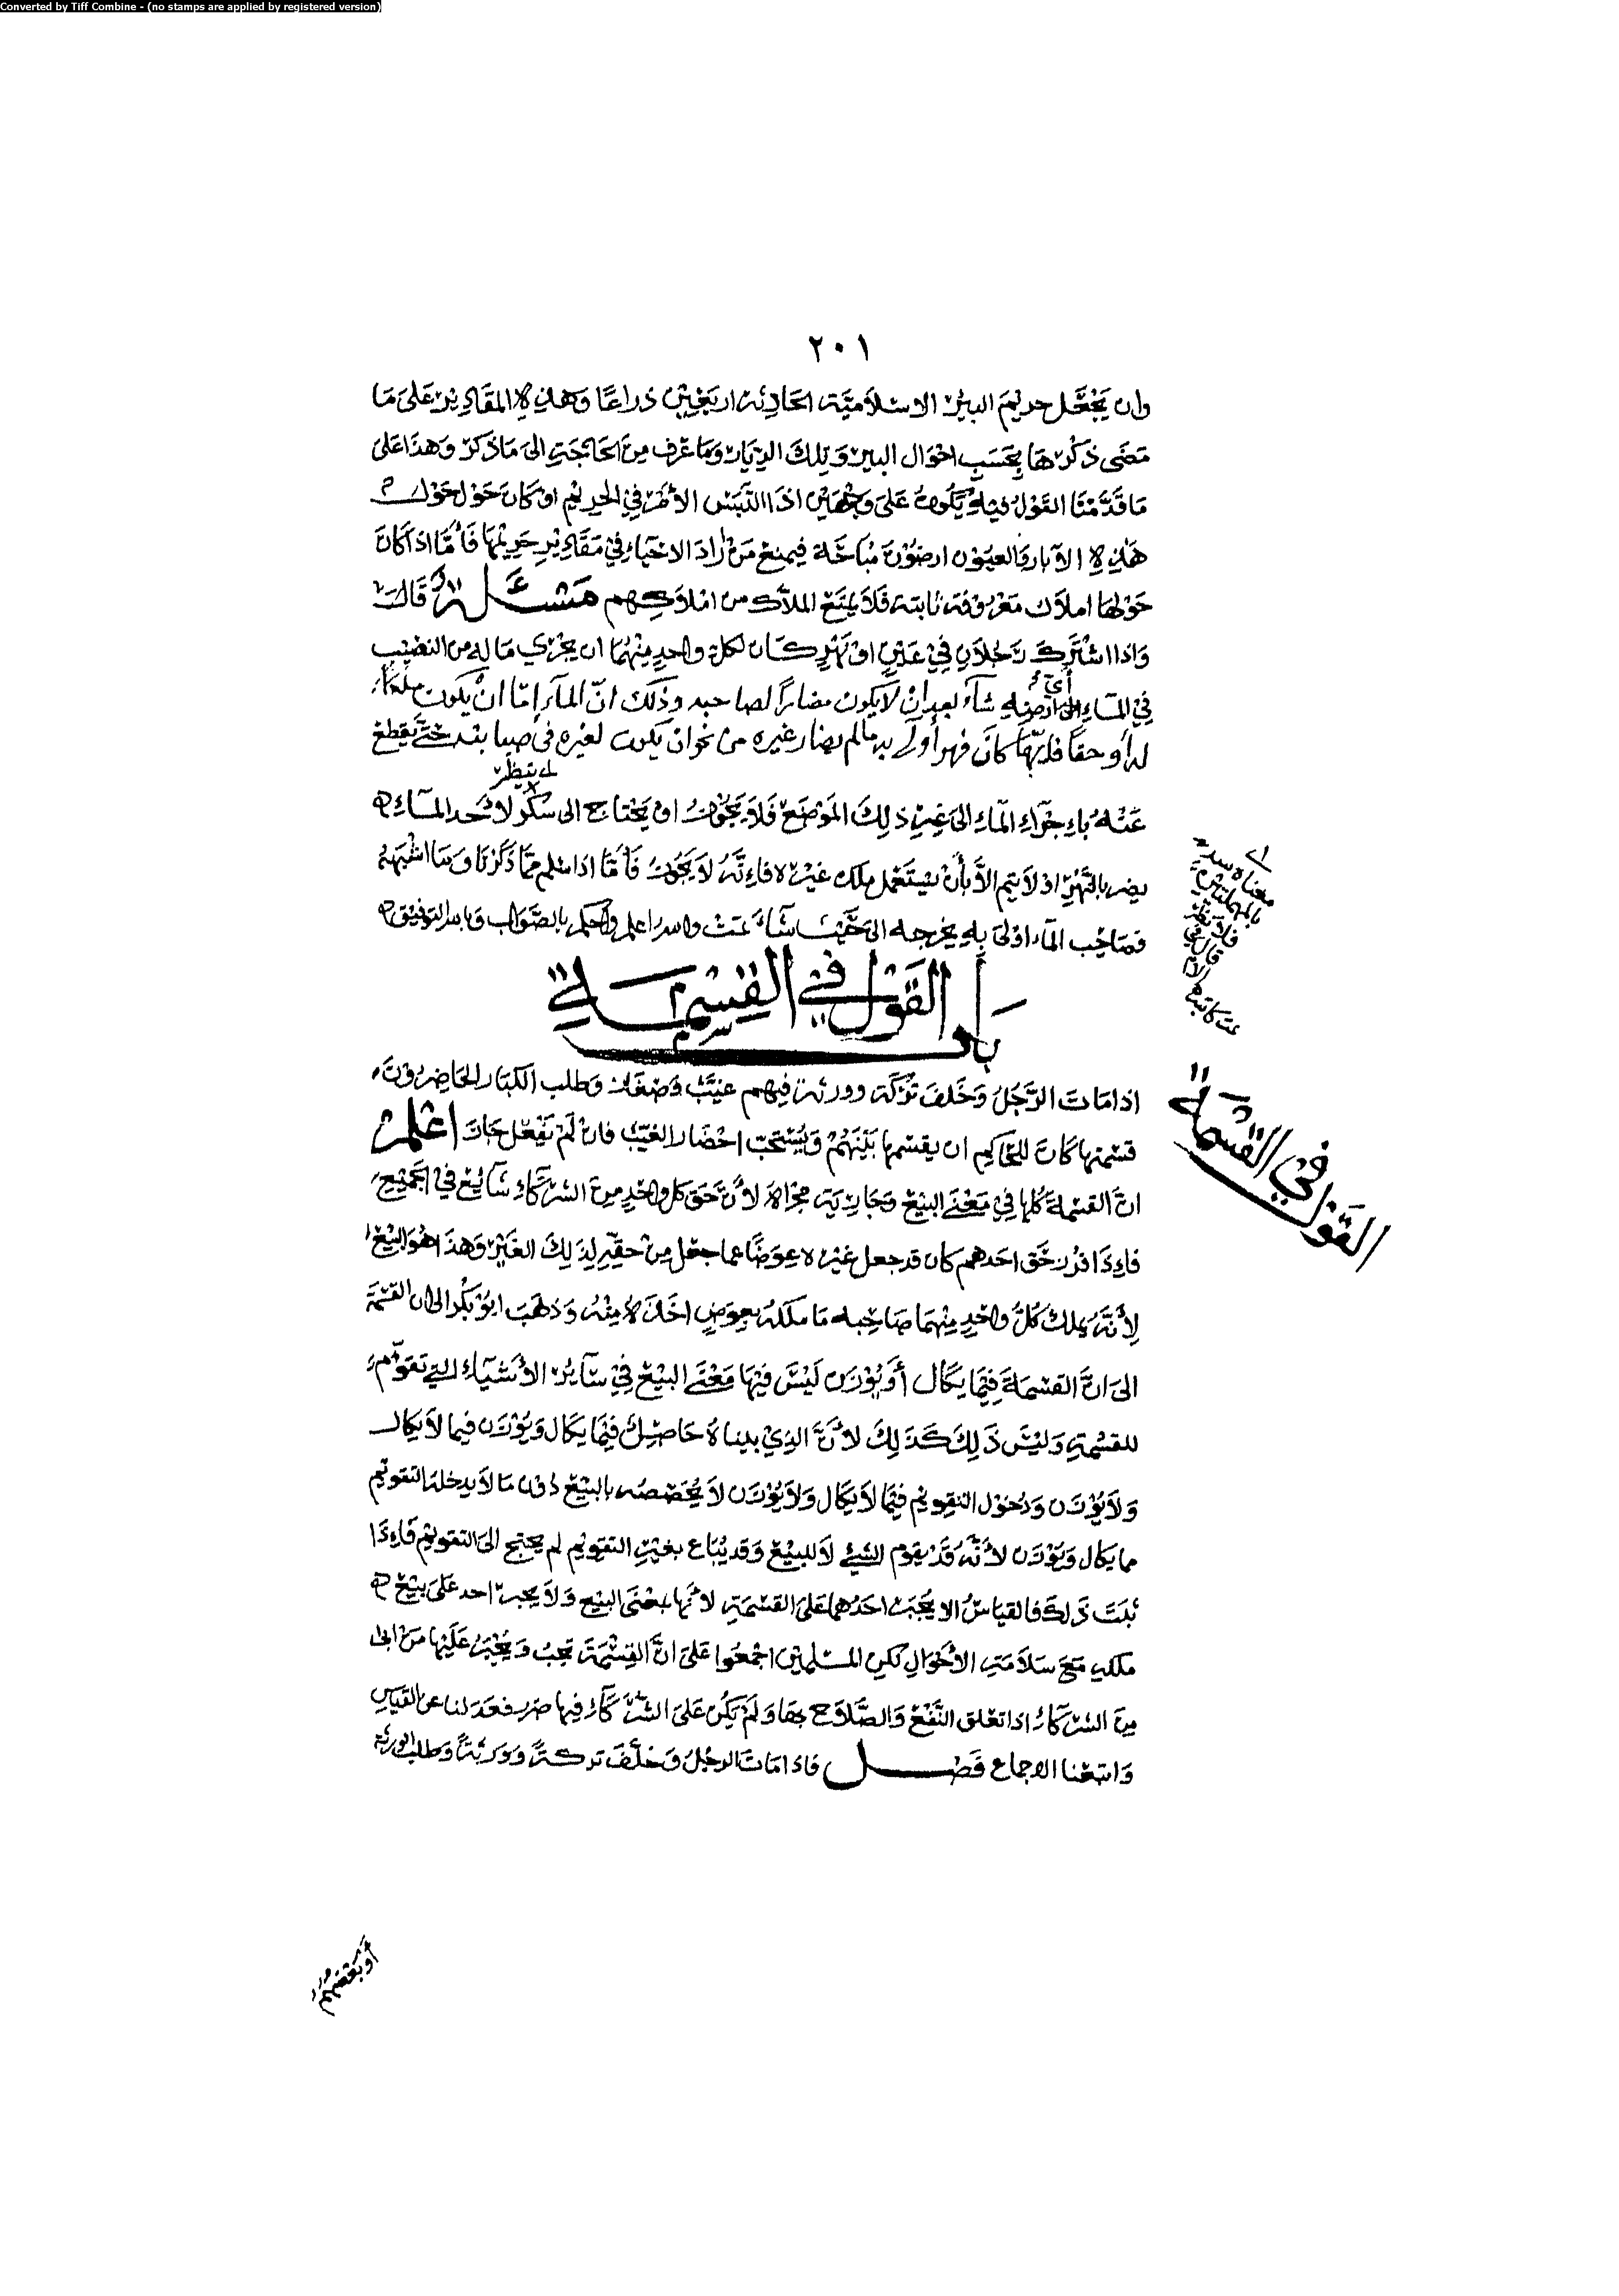 Converted by Tiff Combine - (no stamps are applied by registered version)
٢٠١
وان يجعل حريم البير الاسلامية الحادثة اربعين ذراعًا وهذه المقادير على ما
مضى ذكرها بحسب احوال البير وتلك الديار وما عرف من الحاجة الى ما ذكر وهذا على
ما قدمنا القول فيه يكون على وجهين اذا التبس الأمر في الحريم او كان حول حول
هذه الآبار والعيون ارضون مباحة فيمنع من اراد الاحياء في مقادير حريمها فأما اذا كان
حولها املاك معروفة ثابتة فلا يمنع الملاك من املاكهم مسئلة قال
واذا اشترك رجلان في عين او نهر كان لكل واحد منهما ان يجري ما له من النصيب
أي
في الماء الى ارضه شآء بعد ان لا يكون مضارًا لصاحبه وذلك انّ المآء إمّا انْ يكون ملكًا
له أو حقًا فايّهما كان فهو أولى به مالم يضار غيره من نحو ان يكون لغيره في صبابته حتى يقطع
ينظر
عنه باجراء الماء الى غير ذلك الموضع فلا يجوز او يحتاج الى سكر لاخذ المآء
يضر بالنهر او لا يتم الا بأن يستعمل ملك غيره فانه لا يجوز فأما اذا سلم مما ذكرنا وما اشبهه
فصاحب الماء اولى به يخرجه الى حيث شاء تمت والله اعلم واحكم بالصواب وبالله التوفيق
باب القول في القسمة
اذا مات الرجل وخلف تركة وورثة فيهم غيّب وصغار وطلب الكبار الحاضرون
قسمتها كان للحاكم ان يقسمها بينهم ويستحب احضار الغيّب فان لم يفعل جاز اعلم
انّ القسمة كلها في معنى البيع وجارية مجراه لأن حق كل واحد من الشركاء شائع في الجميع
فاذا افرز حق احدهم كان قد جعل غيره عوضًا عما جعل من حقه لذلك الغير وهذا هو البيع
لأنه يملك كل واحد منهما صاحبه ما ملكه بعوض اخذه منه وذهب ابو بكر الى ان القسمة
الى ان القسمة فيما يكال أو يوزن ليس فيها معنى البيع في سآئر الأشيآء التي تقوم
للقسمة وليس ذلك كذلك لأن الذي بيناه حاصل فيما يكال ويوزن فيما لا يكال
ولا يوزن ودخول التقويم فيما لا يكال ولا يوزن لا يخصصه بالبيع دون ما لا يدخله التقويم
مما يكال ويوزن لأنه قد يقوم الشيء لا للبيع وقد يباع بغير التقويم لم يحتج الى التقويم فاذا
ثبت ذلك فالقياس الا يجبر احدهما على القسمة لأنها بمعنى البيع ولا يجبر احد على بيع
ملكه مع سلامة الأحوال لكن المسلمين اجمعوا على ان القسمة تجب ويجبر عليها من ابى
من الشركاء اذا تعلق النفع والصلاح بها ولم يكن على الشركآء فيها ضرر فعدلنا عن القياس
واتبعنا الاجماع فصل فاذا مات الرجل وخلف تركة وورثة وطلب الورثة
أو بعضهم
معناه سد
بالمهملتين
قال في
الام
تمت كاتبه
القول في القسمة